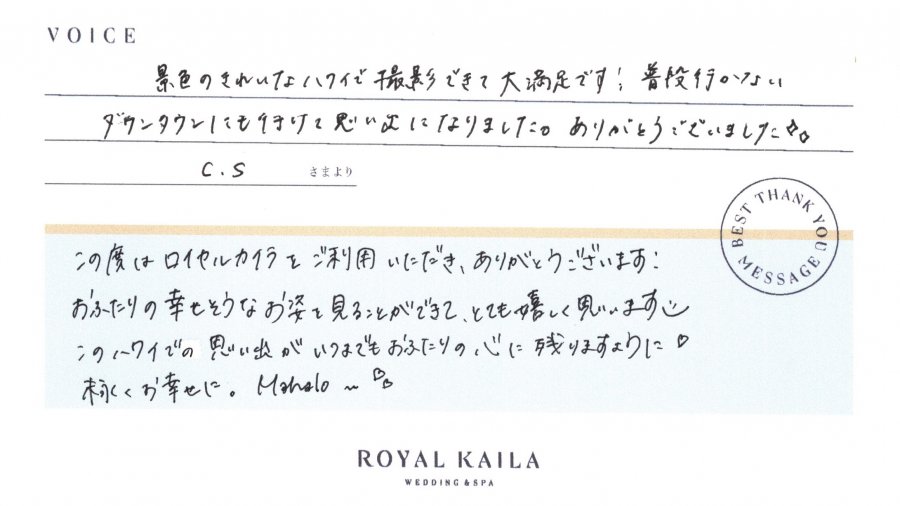 VOICE
景色のきれいなハワイで撮影できて大満足です! 普段行かない
ダウンタウンにも行けて思い出になりました。ありがとうございました
C.S さまより
BEST THANK YOU MESSAGE
この度はロイヤルカイラをご利用いただき、ありがとうございます!
おふたりの幸せそうなお姿を見ることができて、とても嬉しく思います
このハワイでの思い出がいつまでもおふたりの心に残りますように♡
末永くお幸せに。Mahalo ~ ♡♡
ROYAL KAILA
WEDDING & SPA